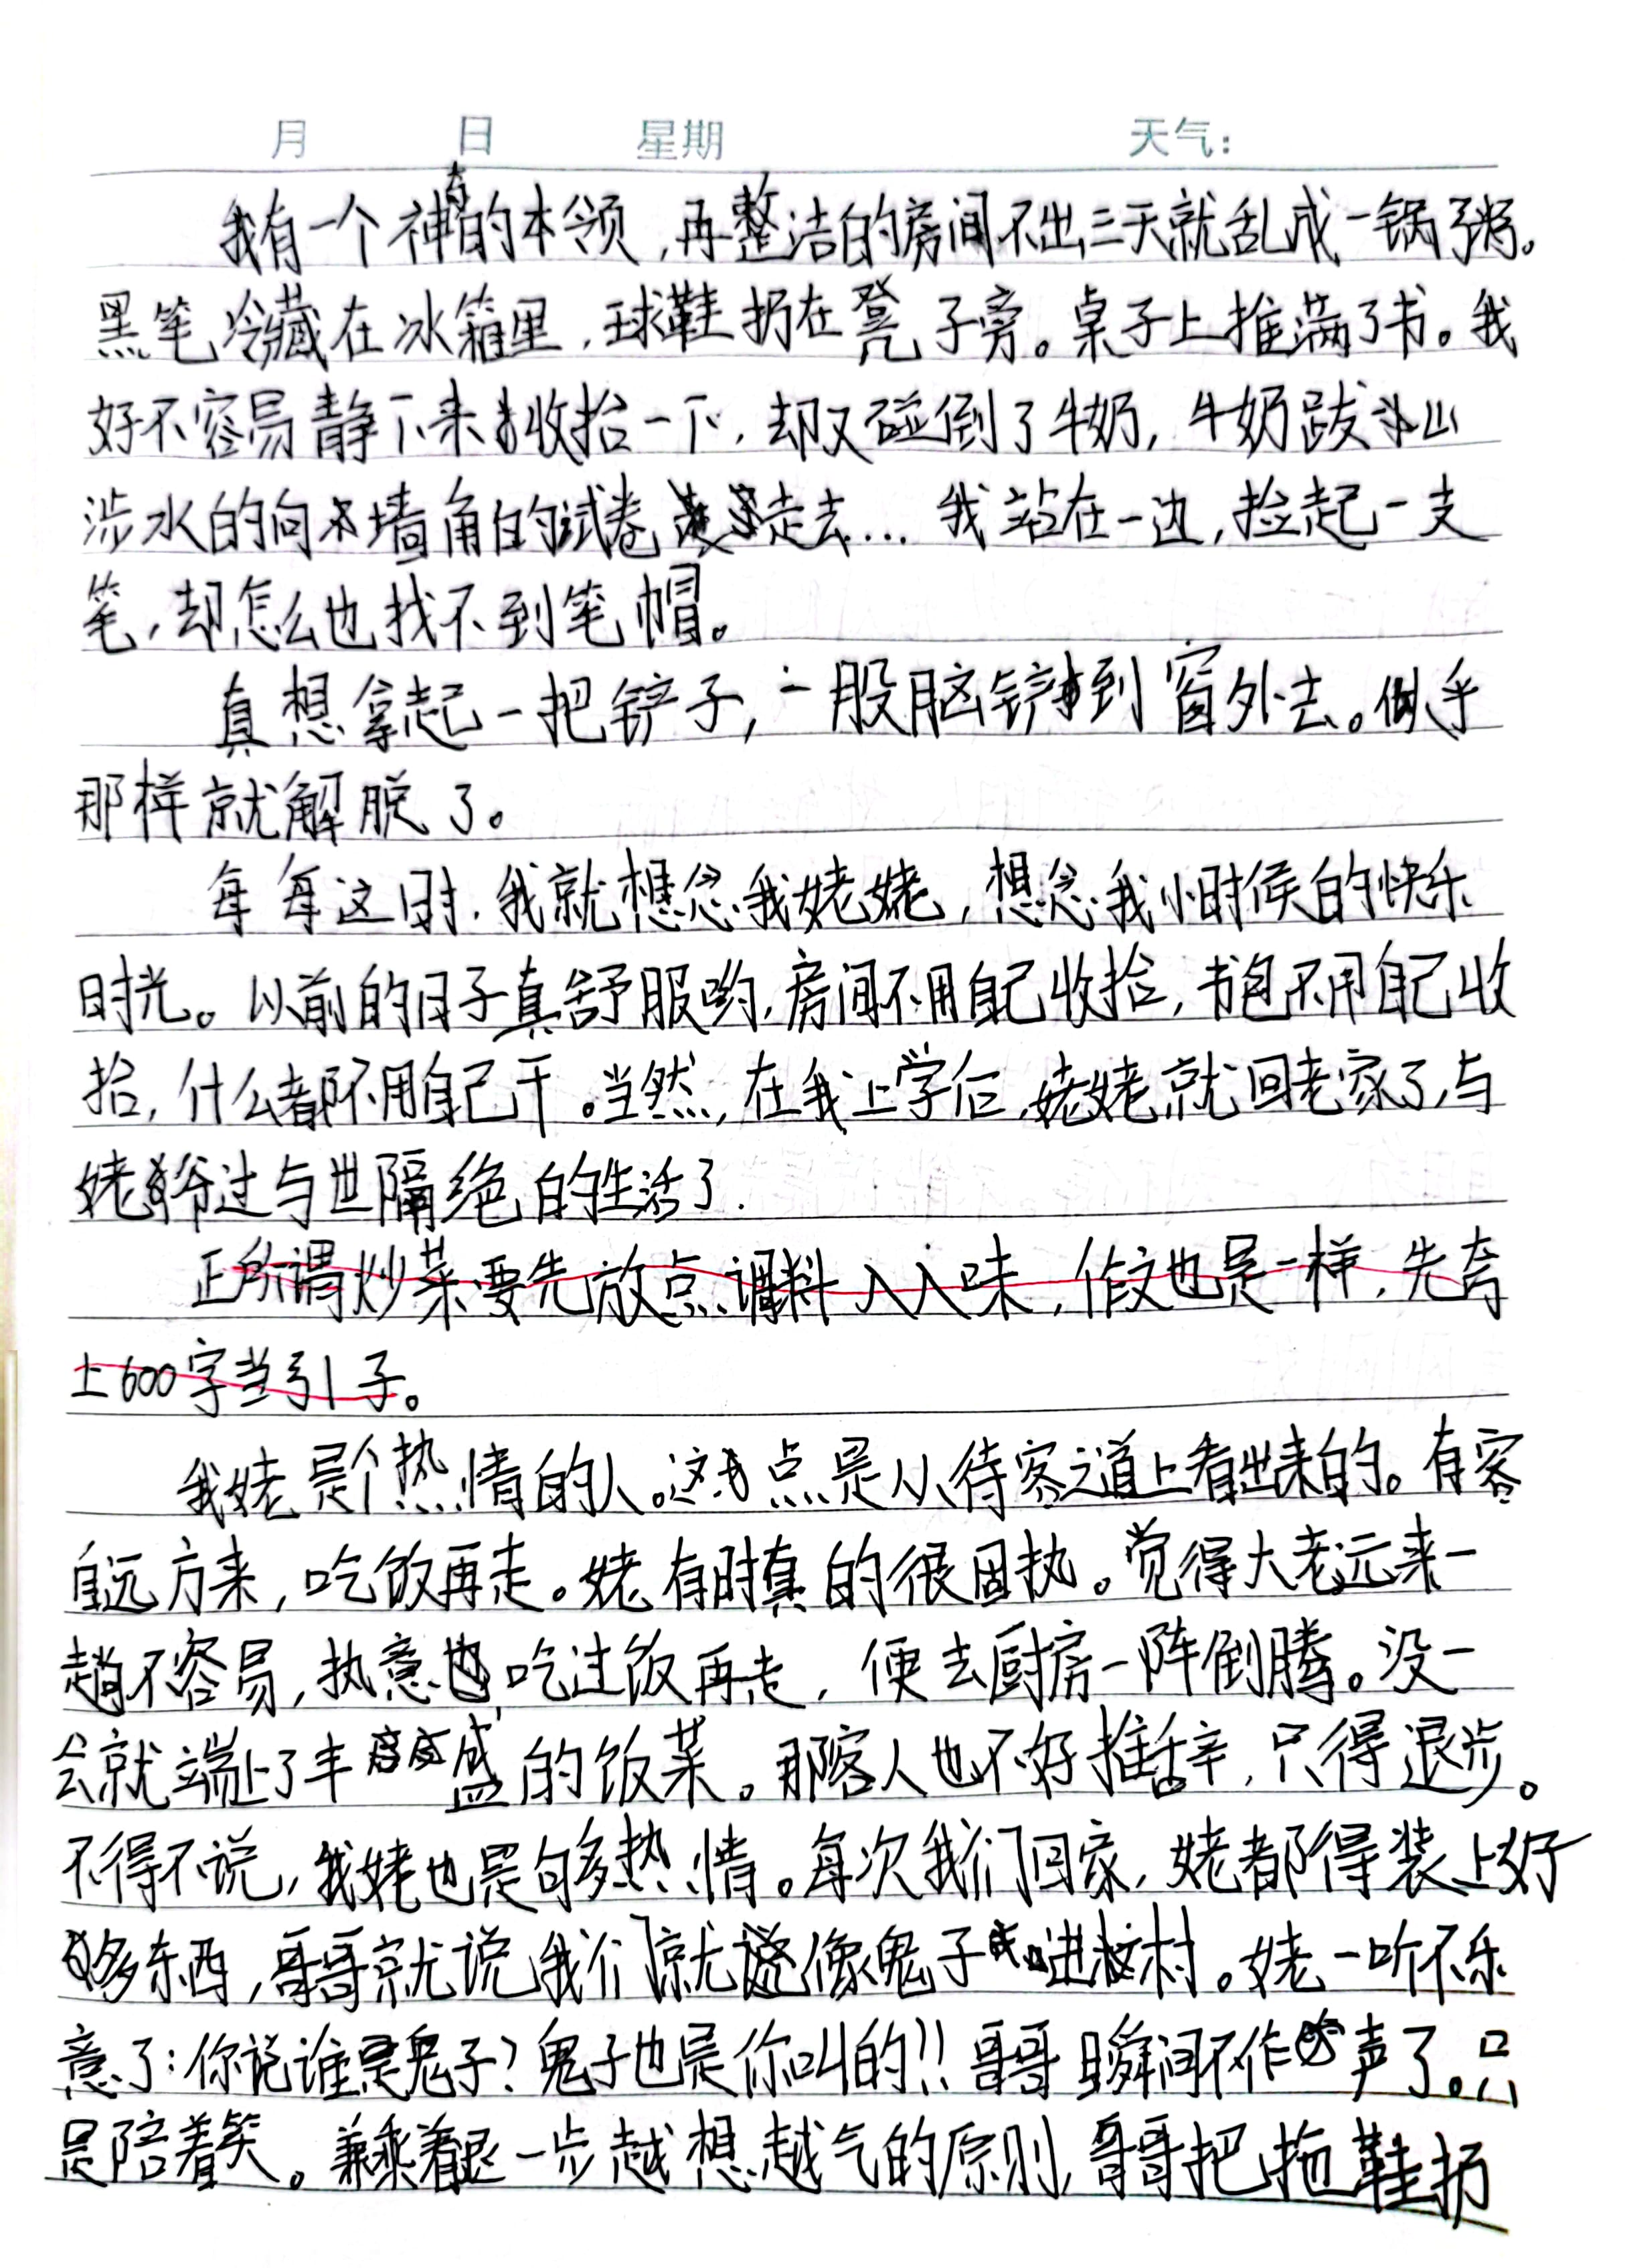 月 日 星期 天气:
我有一个神奇的本领,再整洁的房间不出三天就乱成一锅粥。
黑笔冷藏在冰箱里,球鞋扔在凳子旁。桌子上堆满了书。我
好不容易静下来收拾一下,却又碰倒了牛奶,牛奶跋山
涉水的向墙角的试卷走去...我站在一边,捡起一支
笔,却怎么也找不到笔帽。
真想拿起一把铲子,一股脑铲到窗外去。似乎
那样就解脱了。
每每这时,我就想念我姥姥,想念我小时候的快乐
时光。以前的日子真舒服哟,房间不用自己收拾,书包不用自己收
拾,什么都不用自己干。当然,在我上学后,姥姥就回老家了,与
姥爷过与世隔绝的生活了.
正所谓炒菜要先放点调料入入味,作文也是一样,先来
上600字当引子。
我姥是个热情的人。这点是从待客之道上看出来的。有客
自远方来,吃饭再走。姥有时真的很固执。觉得大老远来一
趟不容易,执意吃过饭再走,便去厨房一阵倒腾。没一
会就端上了丰盛的饭菜。那客人也不好推辞,只得退步。
不得不说,我姥也是够热情。每次我们回家,姥都得装上好
够多东西,哥哥就说我们就像鬼子进村。姥一听不乐
意了:你说谁是鬼子?鬼子也是你叫的!!哥哥瞬间不作声了。只
是陪着笑。兼乘着退一步越想越气的原则,哥哥把拖鞋扔